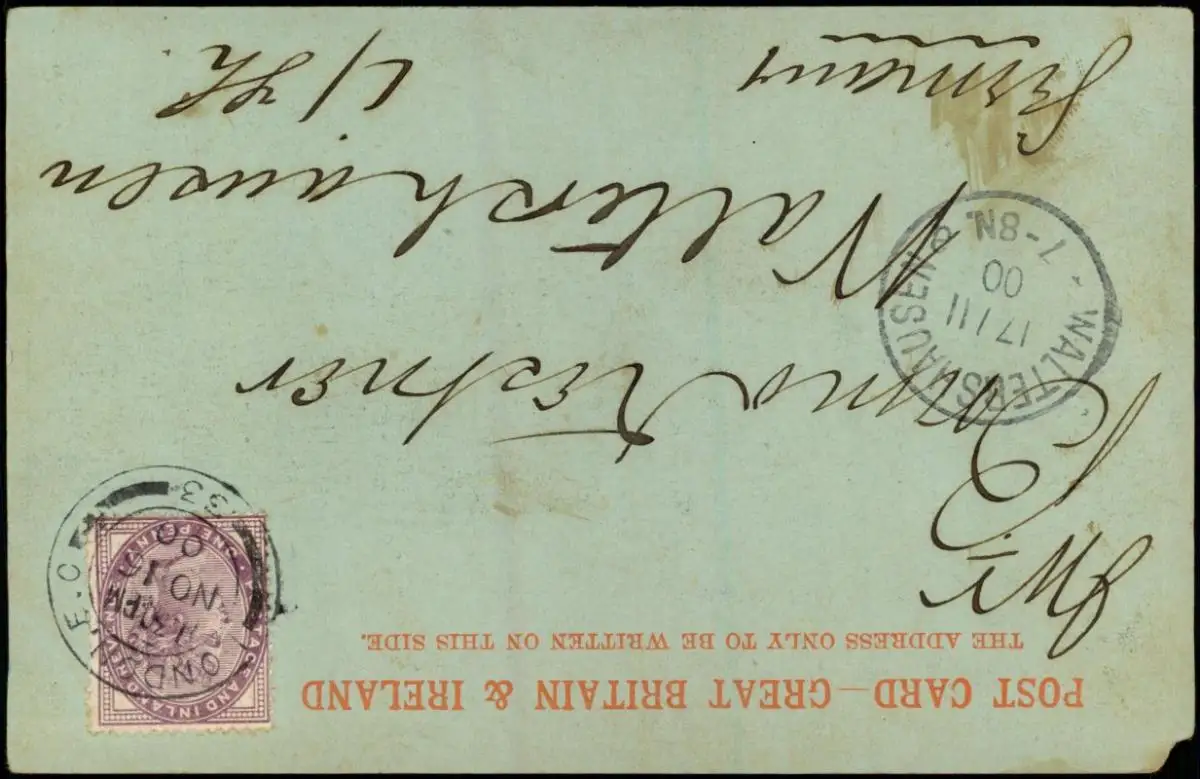 POST CARD — GREAT BRITAIN & IRELAND
THE ADDRESS ONLY TO BE WRITTEN ON THIS SIDE.
Kestner
Waltershausen
i/Th.
Germany
WALTERSHAUSEN
17/11
00
7-8N.
LOND E.C
NO 1
00
33
POSTAGE AND INLAND REVENUE
ONE PENNY